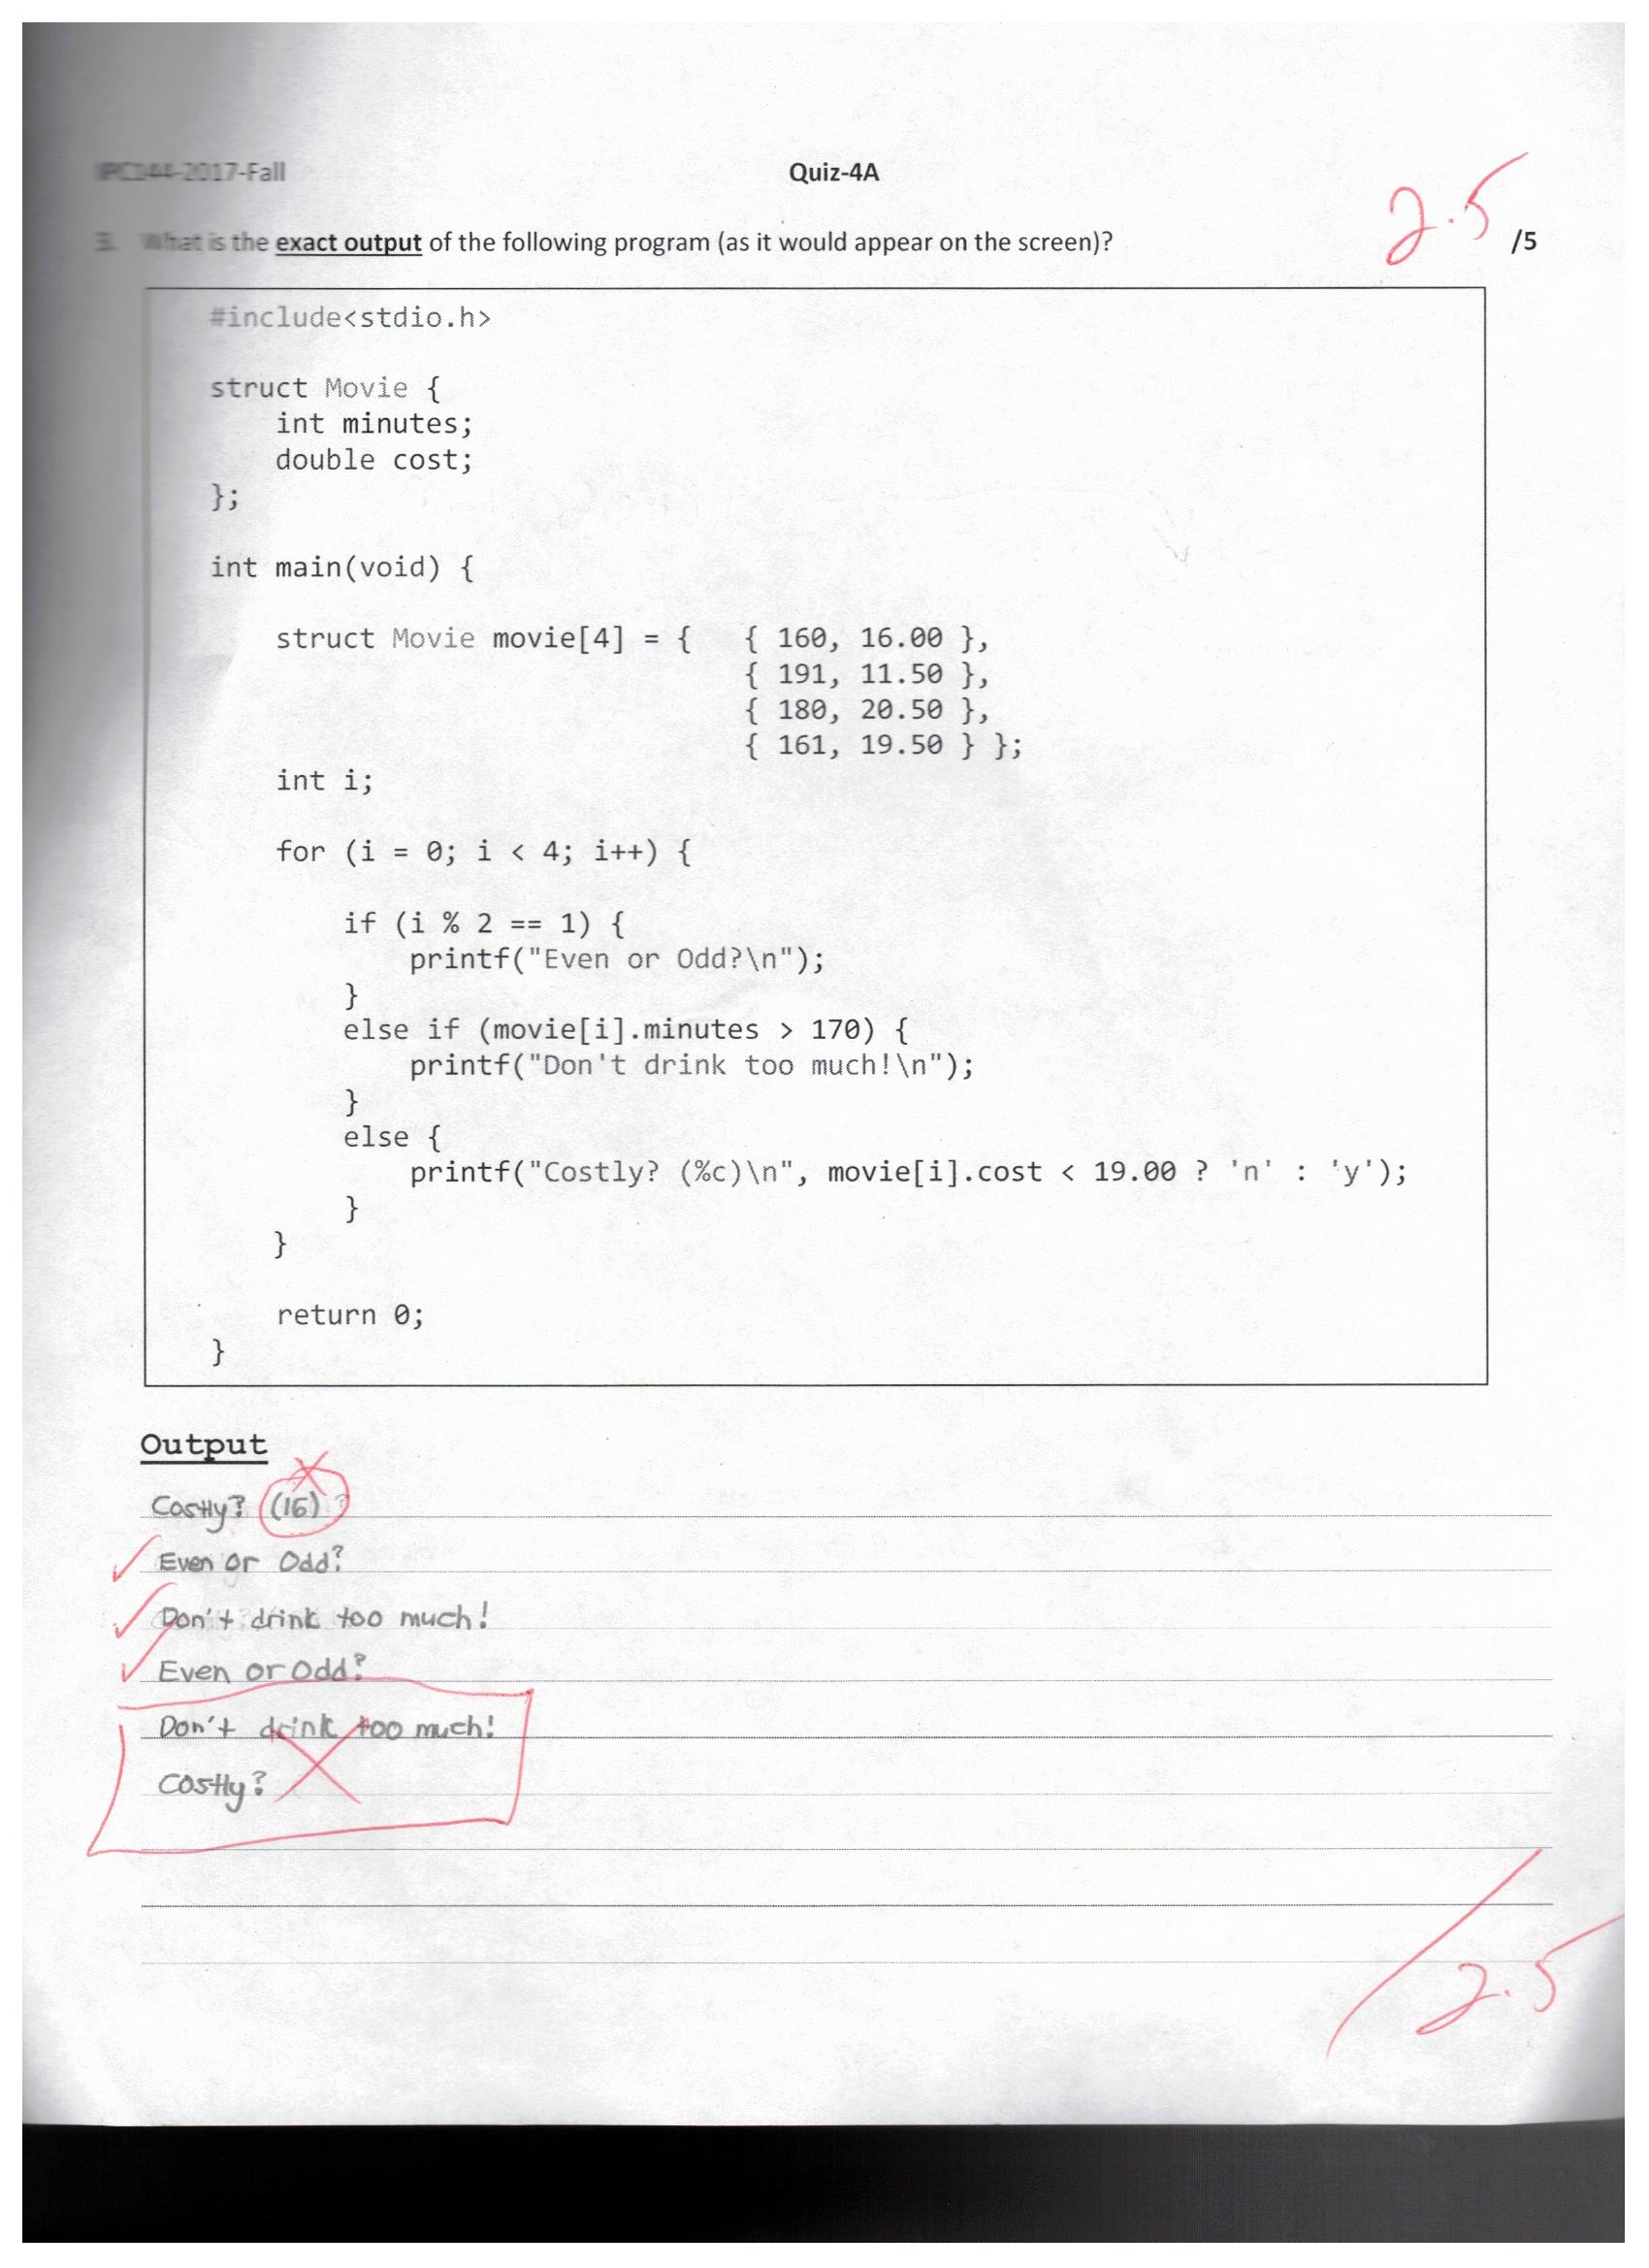 IPC144-2017-Fall
Quiz-4A
2.5
/5
3. What is the exact output of the following program (as it would appear on the screen)?
#include<stdio.h>
struct Movie {
int minutes;
double cost;
};
int main(void) {
struct Movie movie[4] = { { 160, 16.00 },
{ 191, 11.50 },
{ 180, 20.50 },
{ 161, 19.50 } };
int i;
for (i = 0; i < 4; i++) {
if (i % 2 == 1) {
printf("Even or Odd?\n");
}
else if (movie[i].minutes > 170) {
printf("Don't drink too much!\n");
}
else {
printf("Costly? (%c)\n", movie[i].cost < 19.00 ? 'n' : 'y');
}
}
return 0;
}
Output
Costly? (16) ?
Even or Odd?
Don't drink too much!
Even or Odd?
Don't drink too much!
Costly?
2.5